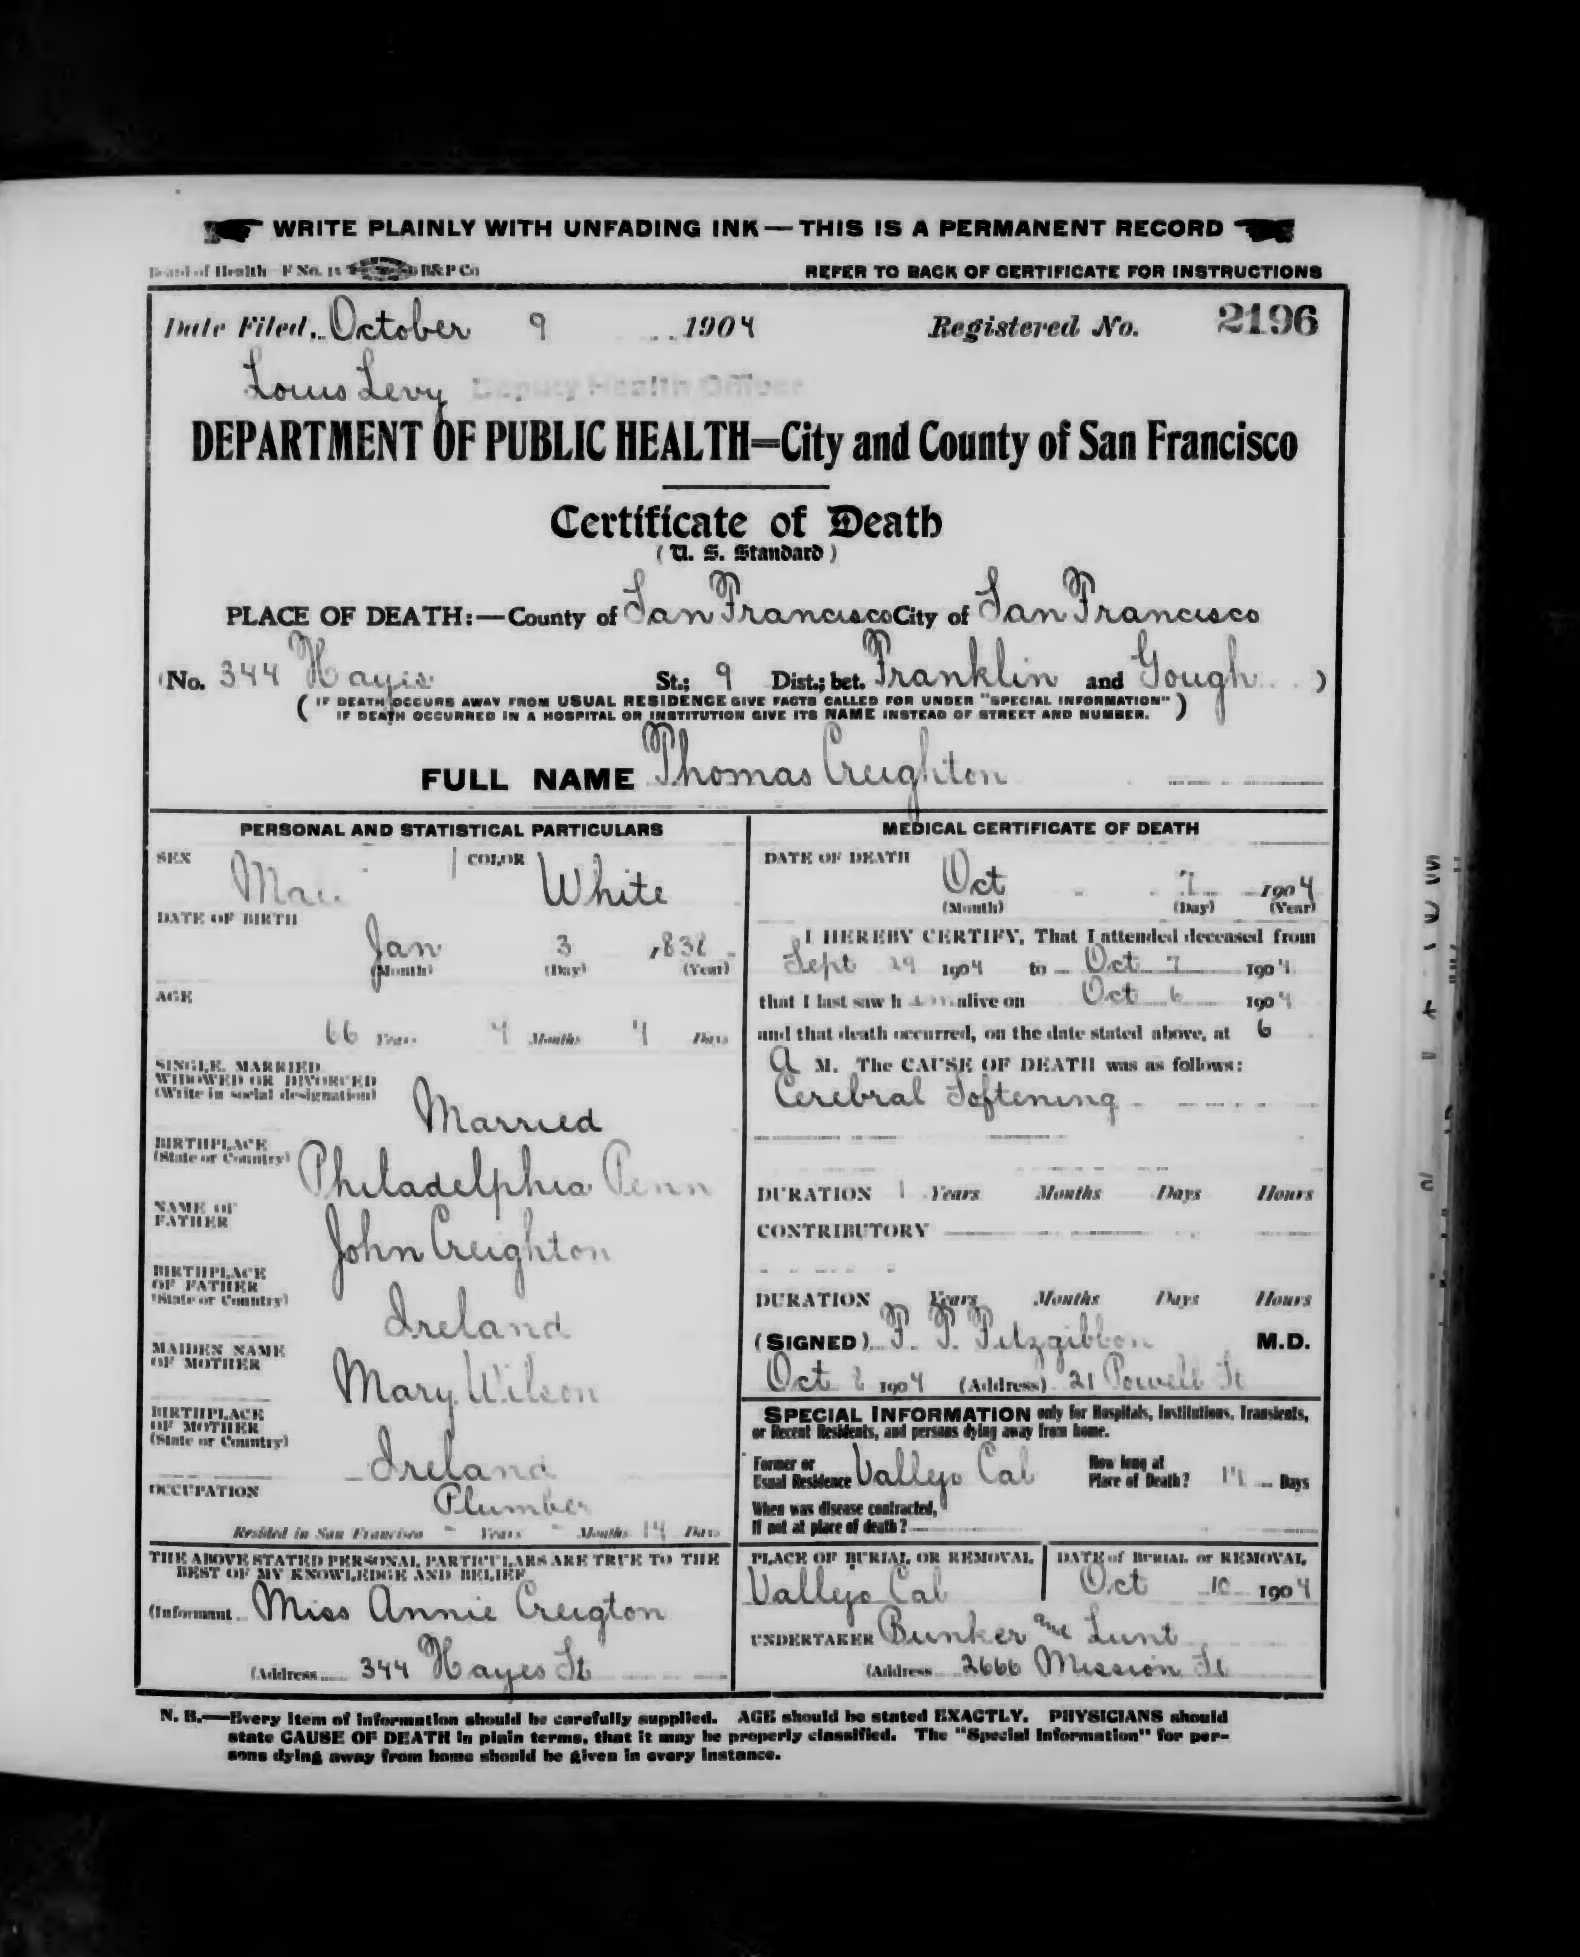 WRITE PLAINLY WITH UNFADING INK — THIS IS A PERMANENT RECORD
Board of Health—F No. 15 B&P Co
REFER TO BACK OF CERTIFICATE FOR INSTRUCTIONS
Date Filed, October 9 1904 Registered No. 2196
Louis Levy Deputy Health Officer
DEPARTMENT OF PUBLIC HEALTH=City and County of San Francisco
Certificate of Death
(U. S. Standard)
PLACE OF DEATH:—County of San Francisco City of San Francisco
(No. 344 Hayes St.; 9 Dist.; bet. Franklin and Gough )
( IF DEATH OCCURS AWAY FROM USUAL RESIDENCE GIVE FACTS CALLED FOR UNDER "SPECIAL INFORMATION"
IF DEATH OCCURRED IN A HOSPITAL OR INSTITUTION GIVE ITS NAME INSTEAD OF STREET AND NUMBER. )
FULL NAME Thomas Creighton
PERSONAL AND STATISTICAL PARTICULARS
SEX COLOR White
DATE OF BIRTH
Jan 3 1838
(Month) (Day) (Year)
AGE
66 Years Months Days
SINGLE, MARRIED,
WIDOWED OR DIVORCED
(Write in social designation)
Married
BIRTHPLACE
(State or Country)
Philadelphia Penn
NAME OF
FATHER
John Creighton
BIRTHPLACE
OF FATHER
(State or Country)
Ireland
MAIDEN NAME
OF MOTHER
Mary Wilson
BIRTHPLACE
OF MOTHER
(State or Country)
Ireland
OCCUPATION
Plumber
Resided in San Francisco - Years - Months 14 Days
THE ABOVE STATED PERSONAL PARTICULARS ARE TRUE TO THE
BEST OF MY KNOWLEDGE AND BELIEF
(Informant Miss Annie Creigton
(Address 344 Hayes St
MEDICAL CERTIFICATE OF DEATH
DATE OF DEATH
Oct 7 1904
(Month) (Day) (Year)
I HEREBY CERTIFY, That I attended deceased from
Sept 29 1904 to Oct 7 1904
that I last saw h alive on Oct 6 1904
and that death occurred, on the date stated above, at 6
A M. The CAUSE OF DEATH was as follows:
Cerebral Softening
DURATION 1 Years Months Days Hours
CONTRIBUTORY
DURATION Years Months Days Hours
(SIGNED) Fitzgibbon M.D.
Oct 8 1904 (Address) 21 Powell St
SPECIAL INFORMATION only for Hospitals, Institutions, Transients,
or Recent Residents, and persons dying away from home.
Former or
Usual Residence Vallejo Cal
How long at
Place of Death? 14 Days
When was disease contracted,
If not at place of death?
PLACE OF BURIAL OR REMOVAL
Vallejo Cal
DATE of BURIAL or REMOVAL
Oct 10 1904
UNDERTAKER Bunker and Lunt
(Address 2666 Mission St
N. B.—Every item of information should be carefully supplied. AGE should be stated EXACTLY. PHYSICIANS should
state CAUSE OF DEATH in plain terms, that it may be properly classified. The "Special Information" for per-
sons dying away from home should be given in every instance.